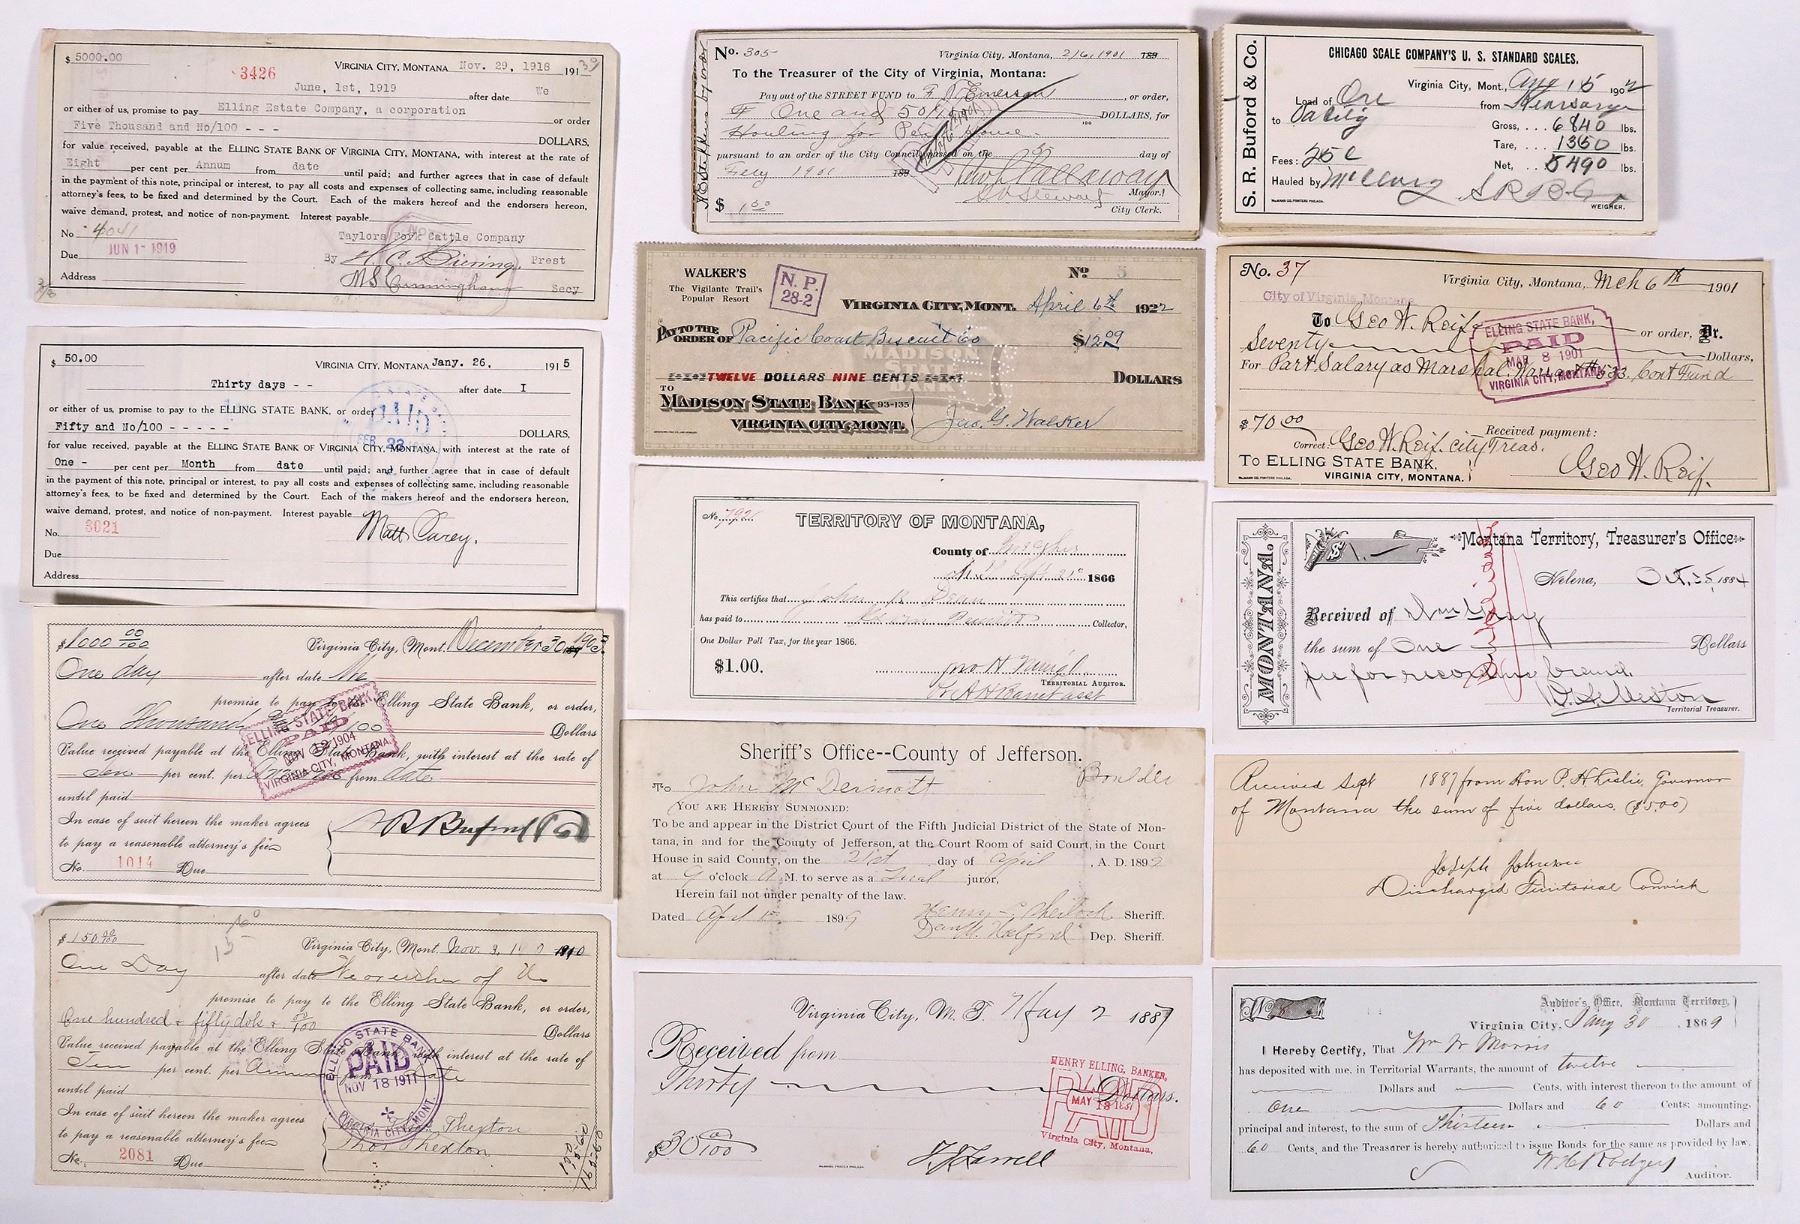 $ 5000.00
3426
VIRGINIA CITY, MONTANA Nov. 29, 1918 191
June, 1st, 1919 after date We
or either of us, promise to pay Elling Estate Company, a corporation or order
Five Thousand and No/100 - - - DOLLARS,
for value received, payable at the ELLING STATE BANK OF VIRGINIA CITY, MONTANA, with interest at the rate of
Eight per cent per Annum from date until paid; and further agree that in case of default
in the payment of this note, principal or interest, to pay all costs and expenses of collecting same, including reasonable
attorney's fees, to be fixed and determined by the Court. Each of the makers hereof and the endorsers hereon,
waive demand, protest, and notice of non-payment. Interest payable
No 4041
Taylors Fork Cattle Company
Due JUN 1- 1919
By H. C. Diering, Prest
Address
M S Cunningham Secy
$ 50.00
VIRGINIA CITY, MONTANA Jany. 26, 191 5
Thirty days - - after date I
or either of us, promise to pay to the ELLING STATE BANK, or order
Fifty and No/100 - - - - - DOLLARS,
PAID
FEB 23
for value received, payable at the ELLING STATE BANK OF VIRGINIA CITY, MONTANA, with interest at the rate of
One - per cent per Month from date until paid; and further agree that in case of default
in the payment of this note, principal or interest, to pay all costs and expenses of collecting same, including reasonable
attorney's fees, to be fixed and determined by the Court. Each of the makers hereof and the endorsers hereon,
waive demand, protest, and notice of non-payment. Interest payable
No. 3021
Matt Carey.
Due
Address
$1000 00/100
Virginia City, Mont. December 30 1903
One day after date We
promise to pay to Elling State Bank, or order,
One thousand 00/100 Dollars
Value received payable at the Elling State Bank, with interest at the rate of
Ten per cent. per from date
until paid
ELLING STATE BANK,
PAID
NOV 12 1904
VIRGINIA CITY, MONTANA.
In case of suit herein the maker agrees
to pay a reasonable attorney's fee
No. 1014 Due
$ 150 00/100
Virginia City, Mont. Nov. 3, 1910
One Day after date We or either of us
promise to pay to the Elling State Bank, or order,
One hundred & fifty dols & 00/100 Dollars
Value received payable at the Elling State Bank with interest at the rate of
Ten per cent. per Annum from date
until paid
ELLING STATE BANK
PAID
NOV 18 1911
VIRGINIA CITY, MONT.
In case of suit herein the maker agrees
to pay a reasonable attorney's fee
Thexton
Thos Thexton
No. 2081 Due
No. 305
Virginia City, Montana, 2/6, 1901 189
To the Treasurer of the City of Virginia, Montana:
Pay out of the STREET FUND to F J Emerson, or order,
One and 50/100 DOLLARS, for
Houling for
pursuant to an order of the City Council passed on the day of
Feby 1901 189
Callaway
Mayor.
City Clerk.
$ 1.50
WALKER'S
The Vigilante Trail's
Popular Resort
N. P.
28-2
No 5
VIRGINIA CITY, MONT. April 6th 1922
PAY TO THE
ORDER OF Pacific Coast Biscuit Co $12.09
MADISON
TWELVE DOLLARS NINE CENTS DOLLARS
TO
MADISON STATE BANK 93-135
VIRGINIA CITY, MONT.
Jas. G. Walker
No. 792
TERRITORY OF MONTANA,
County of Meagher
Sept 21st 1866
This certifies that John R Dean
has paid to Collector,
One Dollar Poll Tax, for the year 1866.
$1.00.
TERRITORIAL AUDITOR.
Sheriff's Office--County of Jefferson.
To John McDermott Boulder
YOU ARE HEREBY SUMMONED:
To be and appear in the District Court of the Fifth Judicial District of the State of Mon-
tana, in and for the County of Jefferson, at the Court Room of said Court, in the Court
House in said County, on the 21st day of April, A. D. 1899
at 9 o'clock A. M. to serve as a Trial juror,
Herein fail not under penalty of the law.
Dated April 1899
Henry C. Sheriff.
Dan Halford Dep. Sheriff.
Virginia City, M. T. May 2 1887
Received from
Thirty Dollars.
HENRY ELLING, BANKER,
PAID
MAY 18 1887
Virginia City, Montana,
$30 00/100
Farrell
S. R. Buford & Co.
CHICAGO SCALE COMPANY'S U. S. STANDARD SCALES.
Virginia City, Mont., Aug 15 1902
Load of Ore from Kearsarge
to
Gross, . . . 6840 lbs.
Tare, . . . 1350 lbs.
Fees: 25 c Net, . . . 5490 lbs.
Hauled by McClurg
WEIGHER.
No. 37
Virginia City, Montana, Mch 6th 1901
City of Virginia, Montana,
To Geo W. Reif or order, Dr.
Seventy Dollars,
For Part Salary as Marshal. Cont Fund
ELLING STATE BANK,
PAID
MAR 8 1901
VIRGINIA CITY, MONTANA
$ 70 00
Received payment:
Correct: Geo W. Reif. city Treas.
TO ELLING STATE BANK,
VIRGINIA CITY, MONTANA.
Geo W. Reif.
MONTANA.
Montana Territory, Treasurer's Office
Helena, Oct. 25, 1884
Received of Wm Gray
the sum of One Dollars
fee for recording brand.
D. H. Weston
Territorial Treasurer.
Received Sept 1887 from Hon P. H Leslie, Governor
of Montana the sum of five dollars. ($5.00)
Joseph Johnson
Discharged Territorial Convict
Auditor's Office, Montana Territory,
Virginia City, 30 1869
I Hereby Certify, That Wm W Morris
has deposited with me, in Territorial Warrants, the amount of twelve
Dollars and Cents, with interest thereon to the amount of
One Dollars and 60 Cents; amounting,
principal and interest, to the sum of Thirteen Dollars and
60 Cents, and the Treasurer is hereby authorized to issue Bonds for the same as provided by law.
W H Rodgers
Auditor.